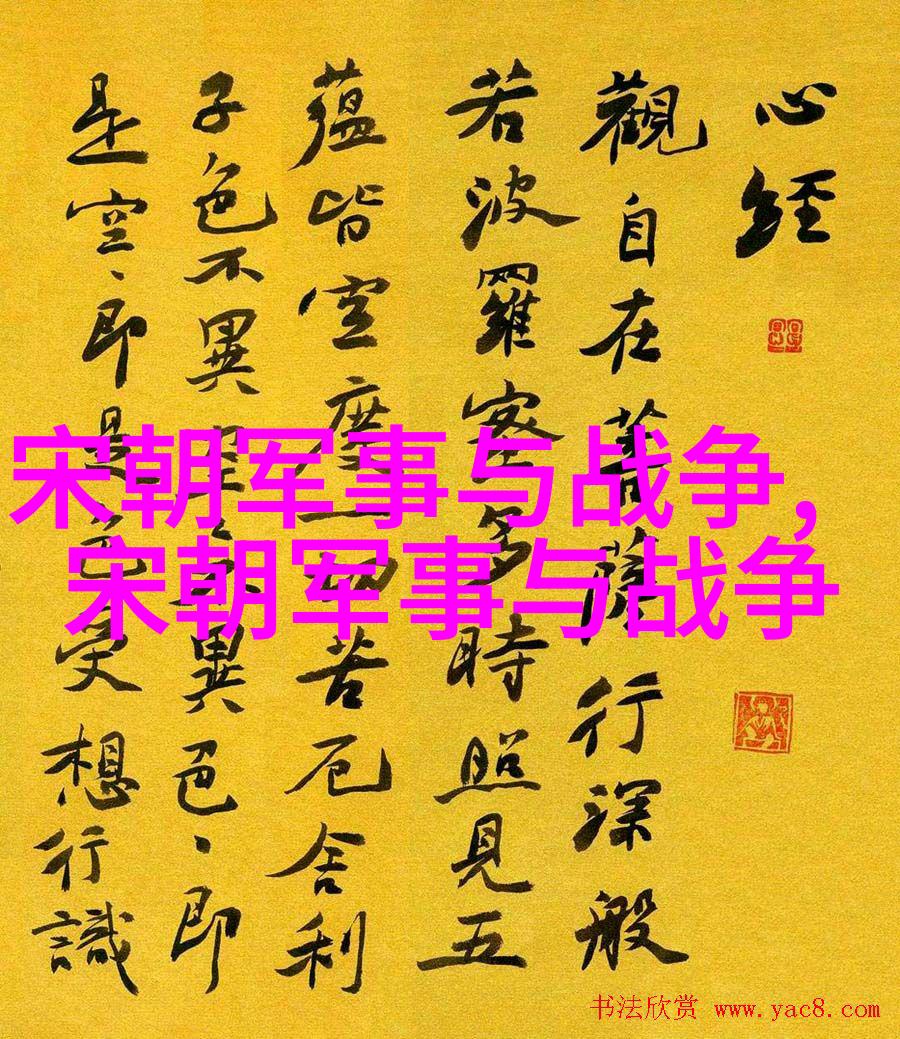 心經
觀自在菩薩行深般
若波羅密多時照見五
蘊皆空度一切苦厄舍利
子色不異空不異色、即
是空、即是色受想行識
宋朝军事与战争,
宋朝军事与战争
书法欣赏 www.yac8.com